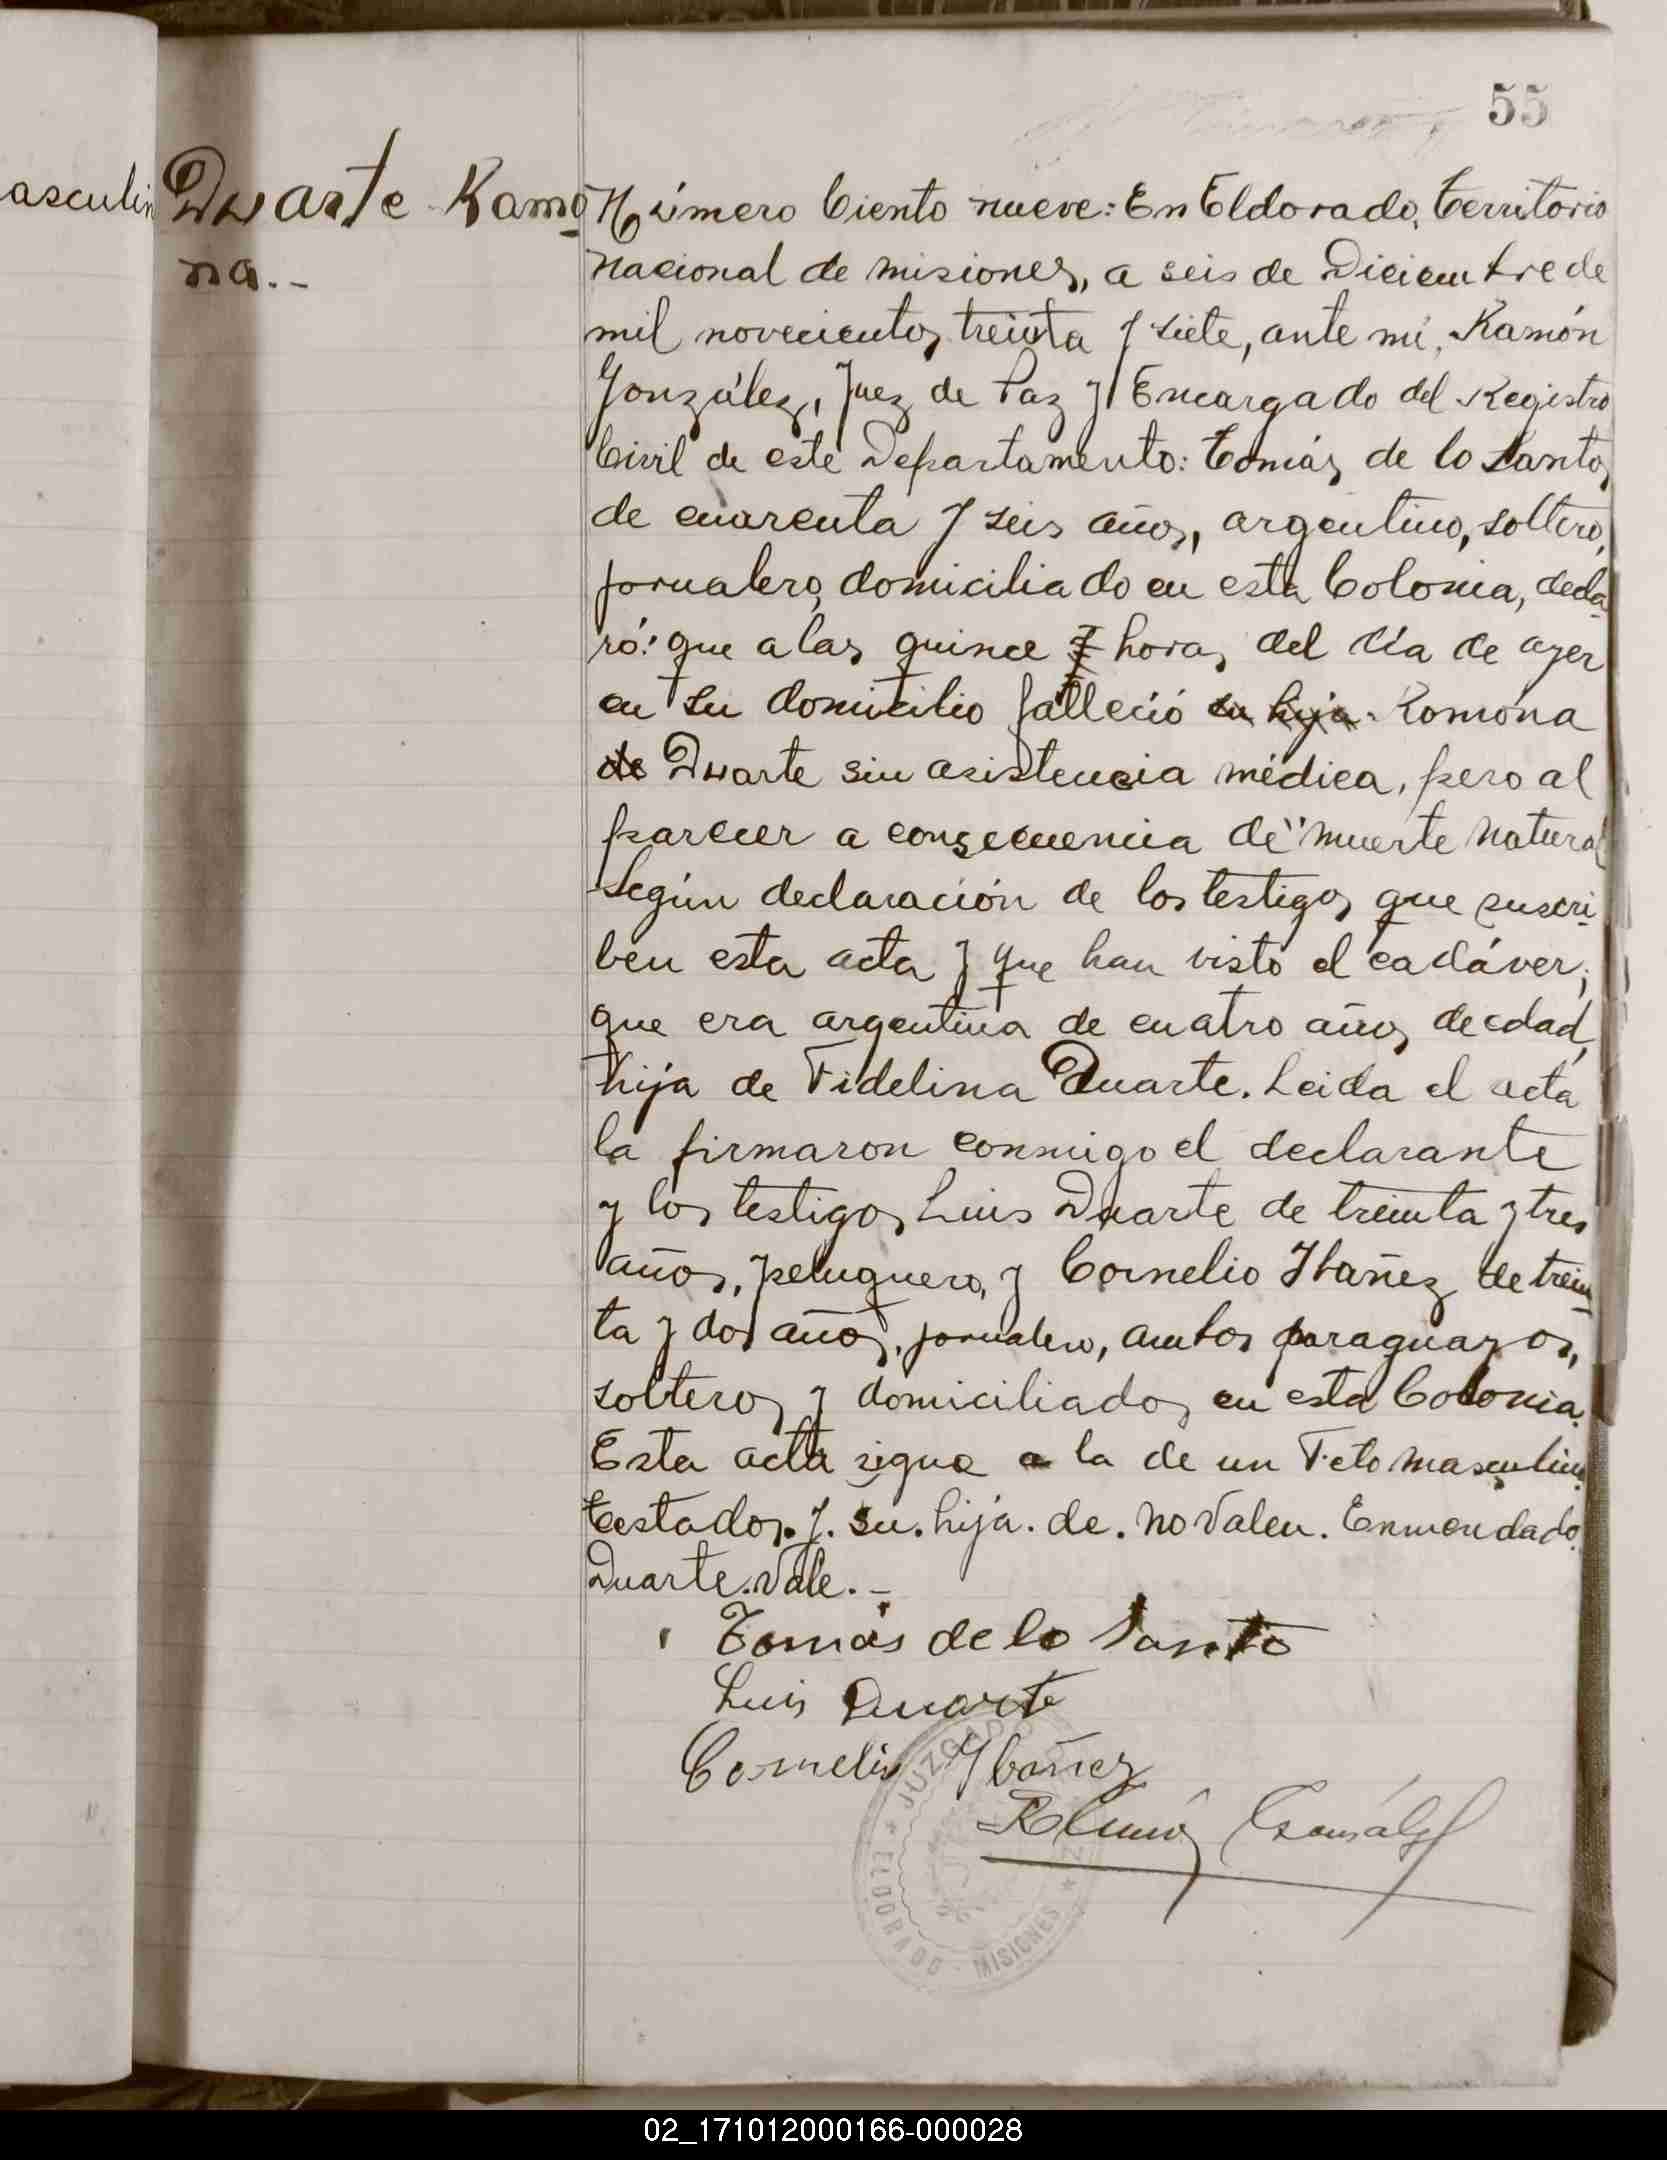 55
asculin
Duarte Ramo
na.-
Número Ciento nueve: En Eldorado, Territorio
Nacional de Misiones, a seis de Diciembre de
mil novecientos treinta y siete, ante mi, Ramón
González, Juez de Paz y Encargado del Registro
Civil de este Departamento: Tomás de lo Santos
de cuarenta y seis años, argentino, soltero,
jornalero, domiciliado en esta Colonia, decla
ró: que a las quince y horas del día de ayer
en su domicilio falleció su hija Romona
de Duarte sin asistencia médica, pero al
parecer a consecuencia de "muerte natural
según declaración de los testigos que suscri-
ben esta acta y que han visto el cadáver;
que era argentina de cuatro años de edad,
hija de Fidelina Duarte. Leida el acta
la firmaron conmigo el declarante
y los testigos Luis Duarte de treinta y tres
años, peluquero, y Cornelio Ibañez de trein-
ta y dos años, jornalero, ambos paraguayos,
solteros y domiciliados en esta Colonia.
Esta acta sigue a la de un Feto masculino
Testados. y. su. hija. de. no valen. Enmendado.
Duarte. Vale.-
Tomás de lo Santo
Luis Duarte
Cornelio Ybañez
Ramón González
JUZGADO
ELDORADO - MISIONES
02_171012000166-000028